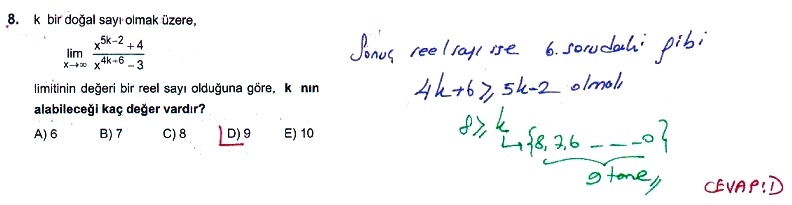 8. k bir doğal sayı olmak üzere,
lim x→∞ x^(5k-2) + 4 / x^(4k+6) - 3
limitinin değeri bir reel sayı olduğuna göre, k nın
alabileceği kaç değer vardır?
A) 6 B) 7 C) 8 D) 9 E) 10
Sonuç reel sayı ise 6. sorudaki gibi
4k+6 ≥ 5k-2 olmalı
8 ≥ k
↳ {8, 7, 6 _ _ _ 0}
9 tane
CEVAP: D